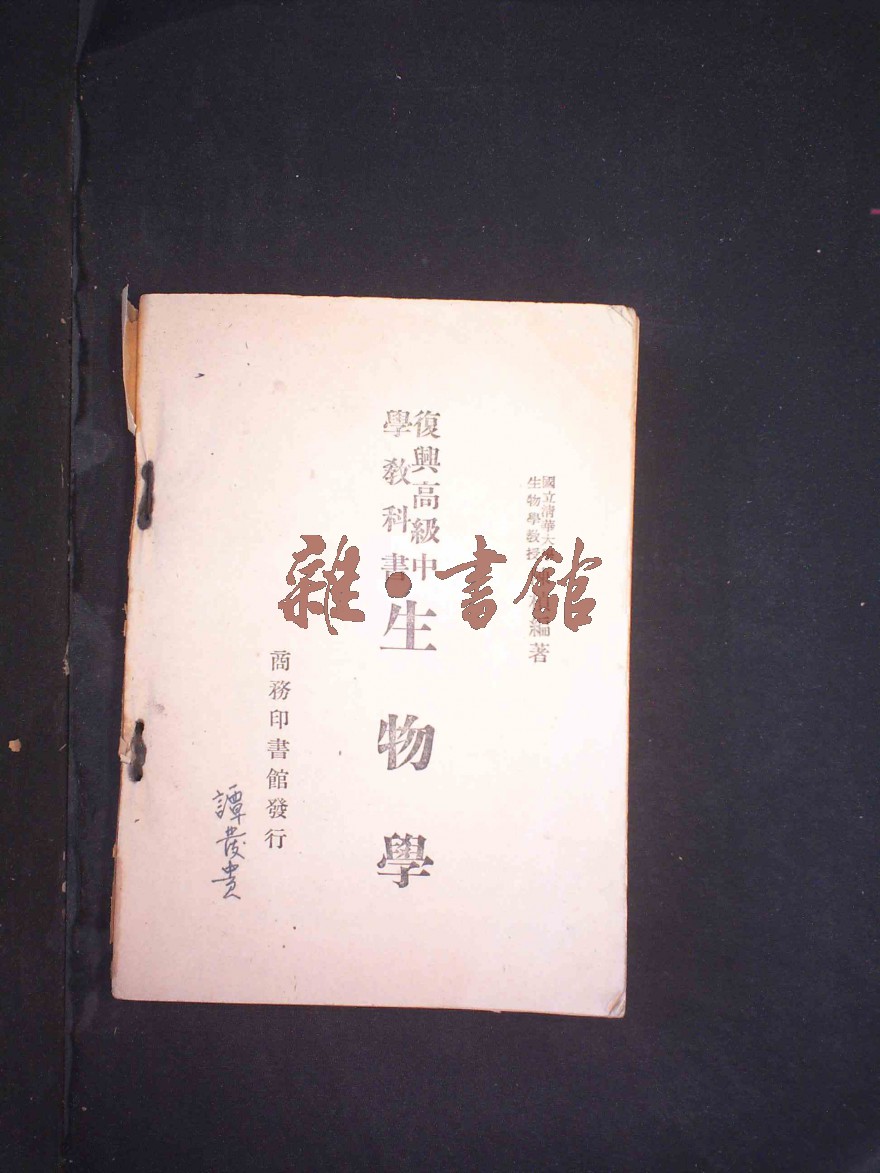 國立清華大學
生物學教授
編著
復興高級中
學教科書
生物學
商務印書館發行
譚發貴
雜·書館